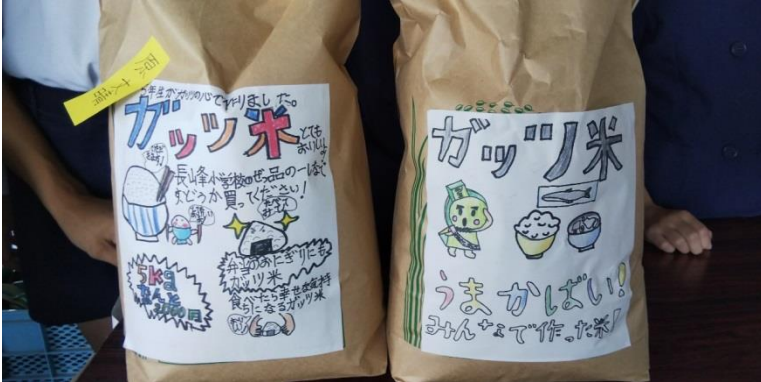 5年生がガッツの心で作りました。
ガッツ米
とても
おいしい
長峰小学校のぜっ品の一しなで
す。どうか買ってください!
弁当のおにぎりにも
ガッツ米
食べたら幸せな気持
ちになるガッツ米
5kg
なんと
ガッツ米
うまかばい!
みんなで作った米!